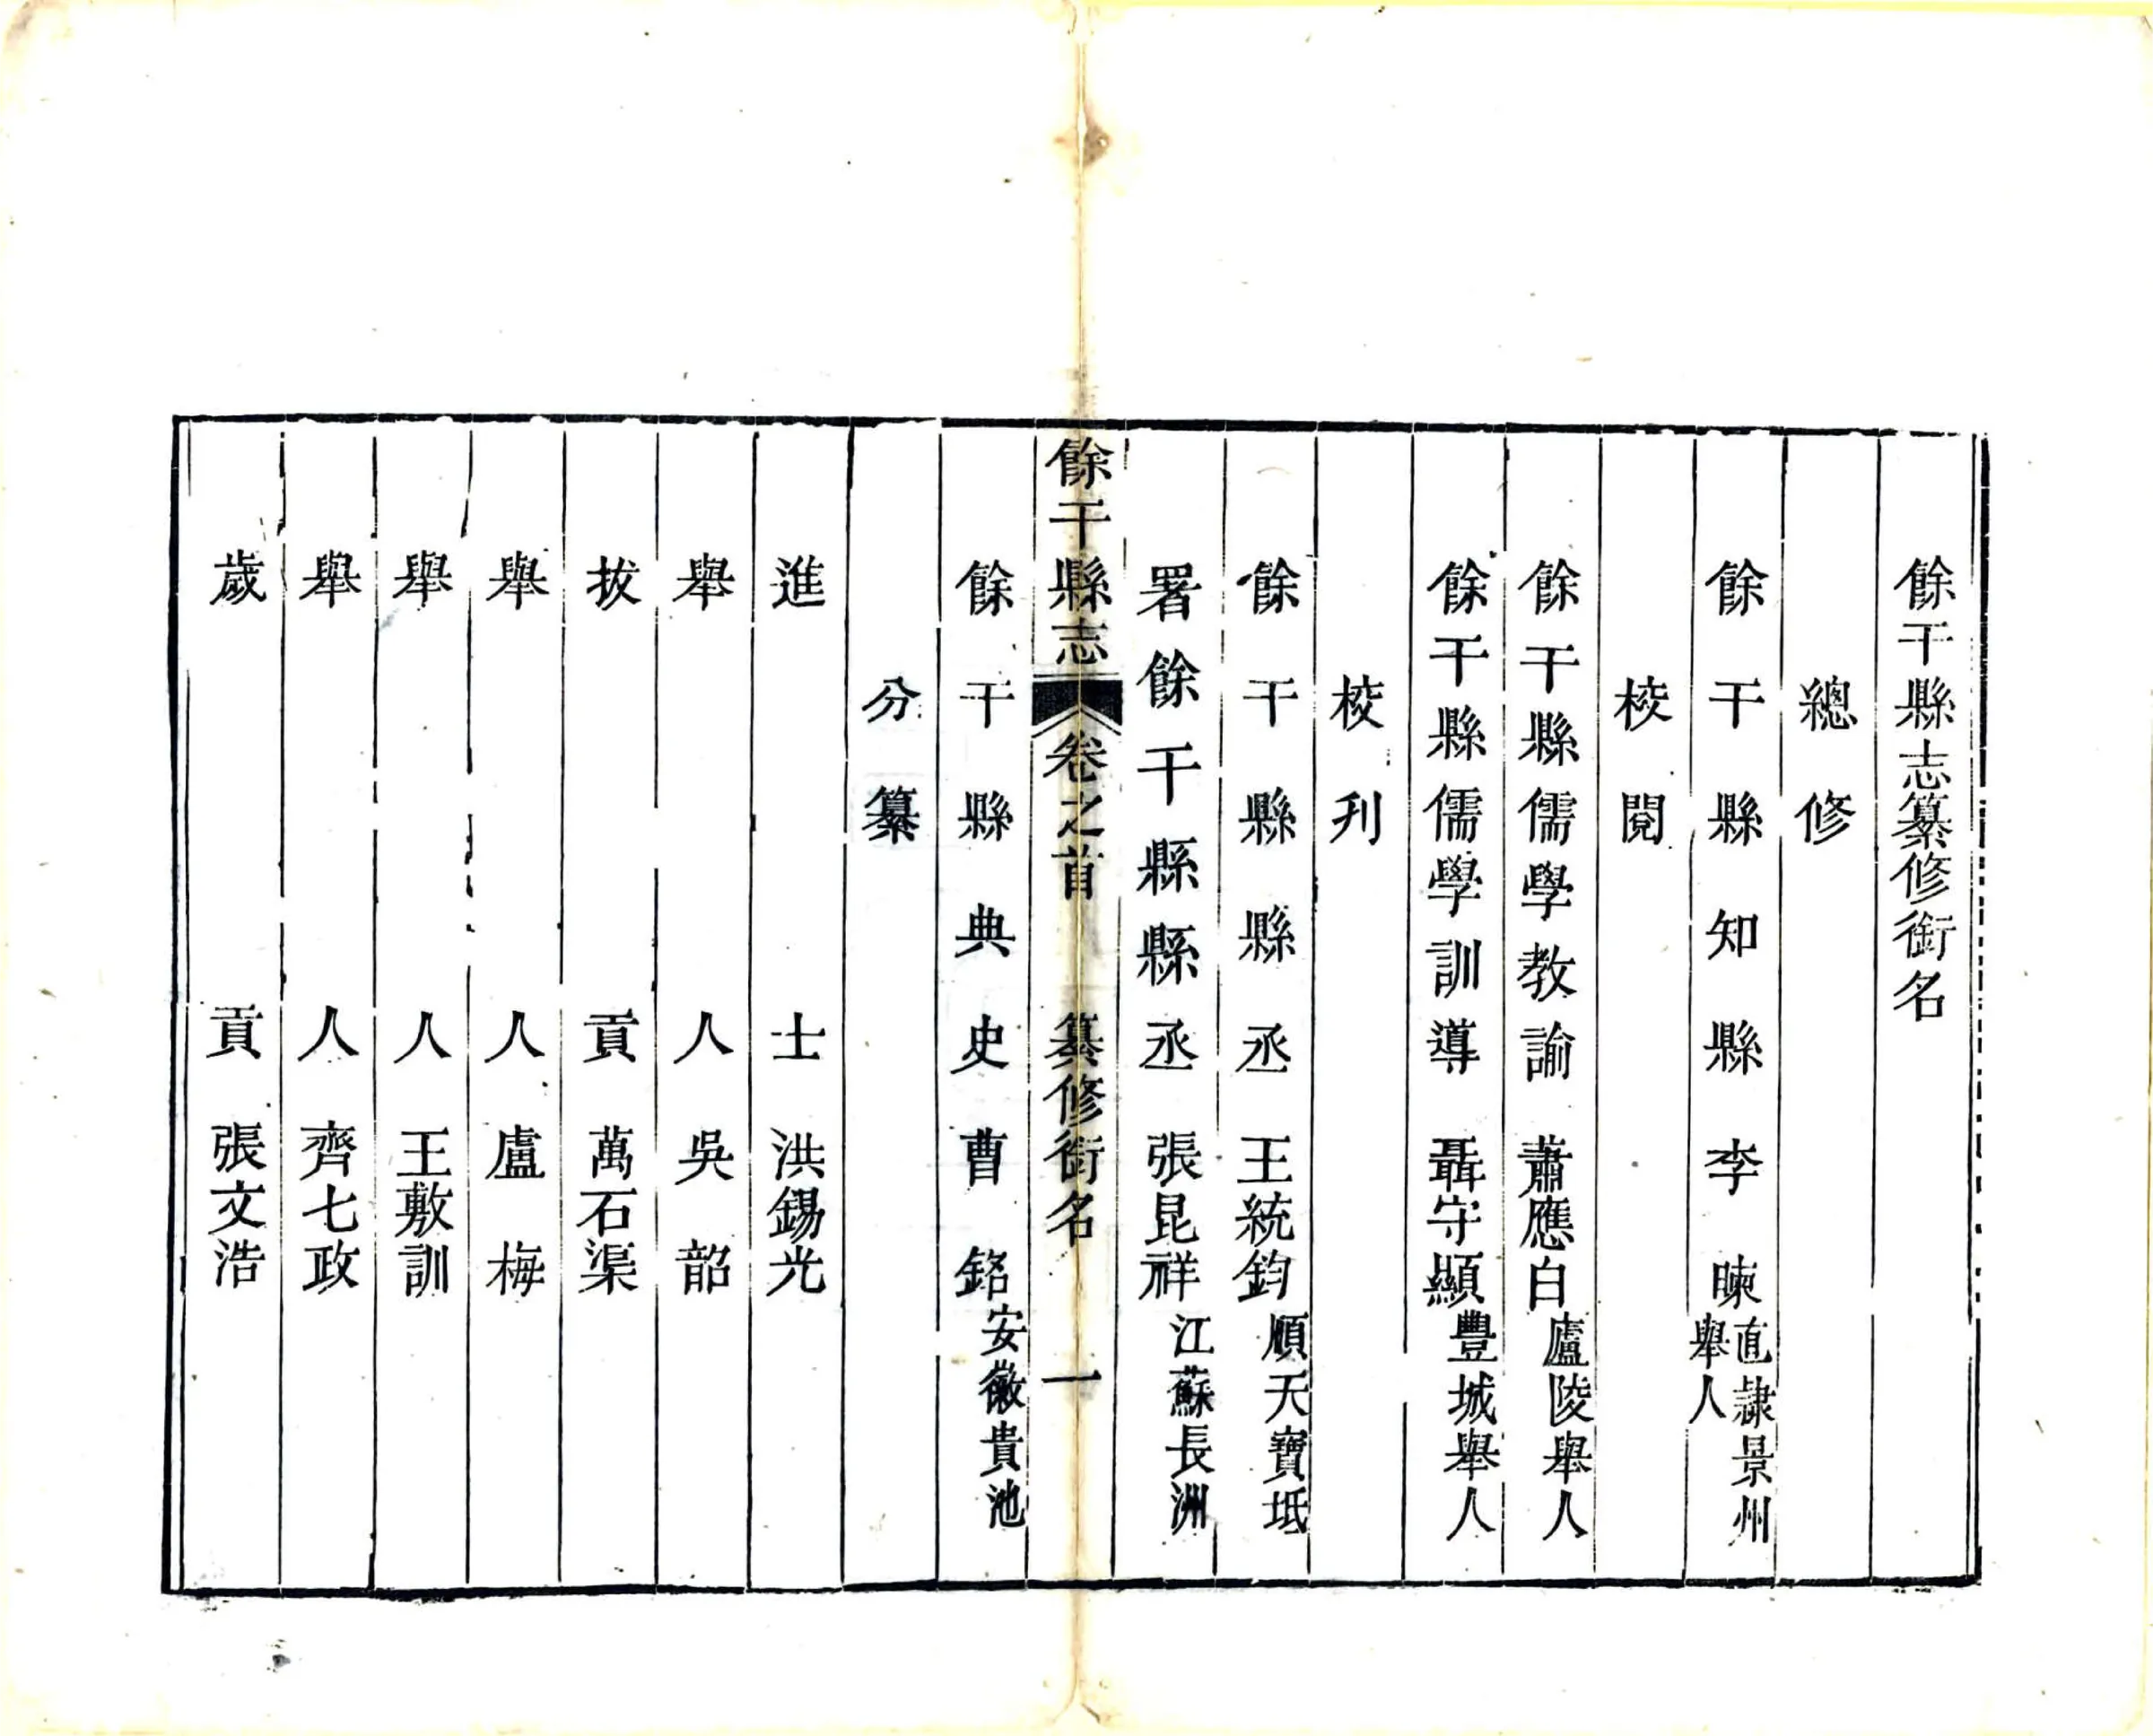 餘干縣志纂修銜名
總修
餘干縣知縣李暕直隷景州舉人
校閱
餘干縣儒學教諭蕭應白廬陵舉人
餘干縣儒學訓導聶守顯豐城舉人
校刋
餘干縣縣丞王統鈞順天寶坻
署餘干縣縣丞張昆祥江蘇長洲
餘干縣志 卷之首 纂修銜名 一
餘干縣典史曹銘安徽貴池
分纂
進士洪錫光
舉人吳韶
拔貢萬石渠
舉人盧梅
舉人王敷訓
舉人齊七政
歲貢張文浩